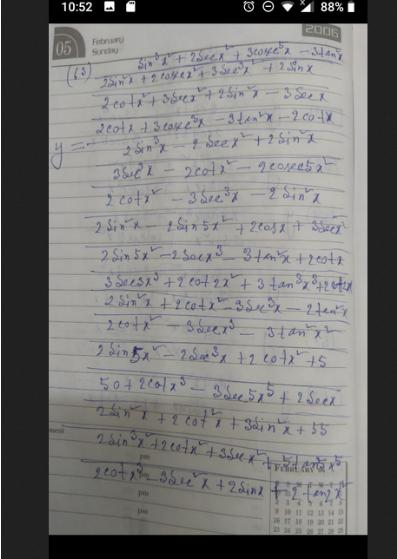 10:52
88%
05
February
Sunday
2006
(63) Sin³x² + 2Secx² + 3cosec⁵x − 3tan²x
2Sin²x + 2cosecx² + 3Sec³x² + 2Sinx
2cotx² + 3Secx² + 2Sin²x − 3Secx
2cotx + 3cosec³x − 3tan²x − 2cotx
y = 2Sin³x − 2Secx² + 2Sin²x
3Sec²x − 2cotx² − 2cosec5x²
2cotx² − 3Sec³x − 2Sin²x
2Sin²x − 2Sin5x² + 2cosx + 3Secx²
2Sin5x² − 2Secx³ − 3tan²x + 2cotx
3Sec3x³ + 2cot2x² + 3tan³x³ + 2cotx
2Sin²x + 2cotx² − 3Sec³x − 2tan²x
2cotx² − 3Secx³ − 3tan²x²
2Sin5x² − 2Sec³x + 2cotx² + 5
50 + 2cotx³ − 3Sec5x⁵ + 2Secx
2Sin²x + 2cot²x + 3Sin²x + 55
2Sin³x² + 2cotx² + 3Secx² + 5tan²x⁵
2cotx³ − 3Sec²x + 2Sinx + 2tan2x²
pm
pm
pm
FEBRUARY